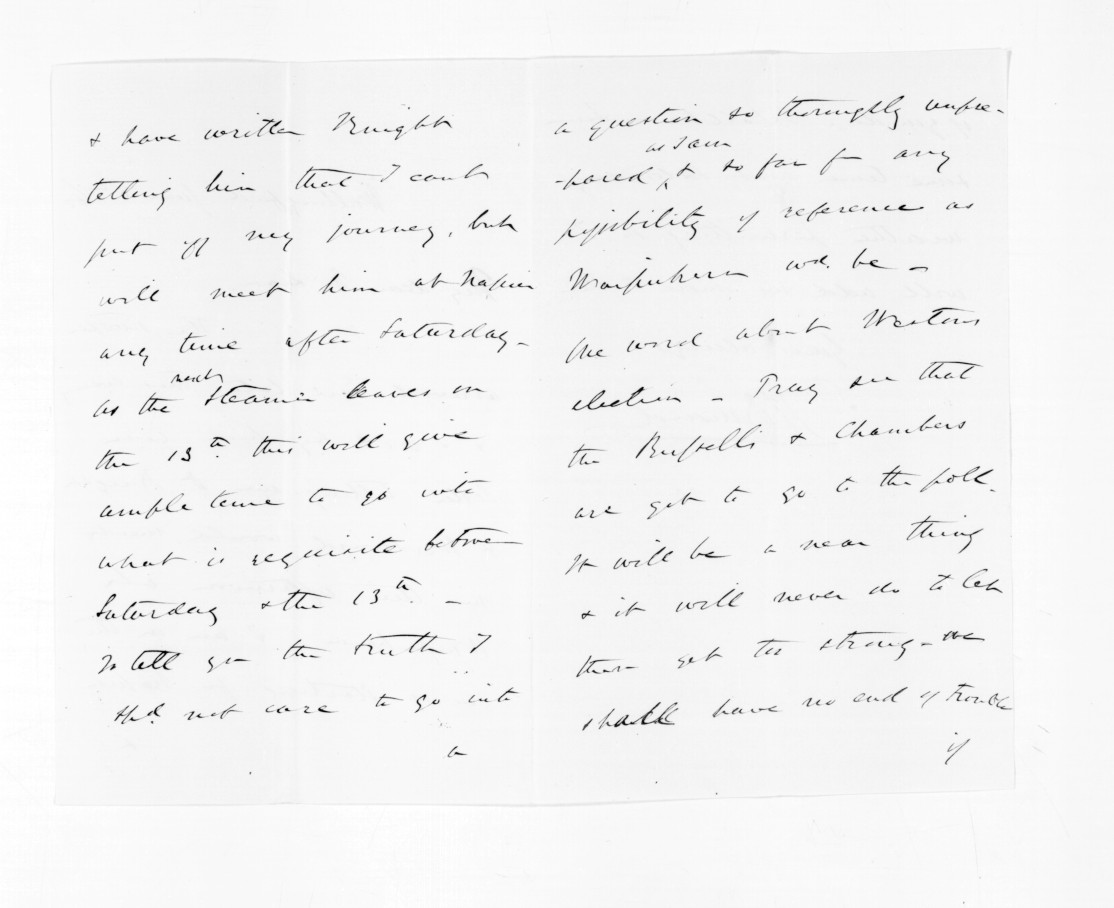 & have written Knight
telling him that I can't
put off my journey, but
will meet him at Napier
any time after Saturday -
as the next Steamer leaves on
the 13th. this will give
ample time to go into
what is requisite between
Saturday & the 13th. -
To tell you the truth I
shd. not care to go into
a
a question so thoroughly unpre-
-pared as I am & so far fm any
possibility of reference as
Waipukurau wd. be -
One word about Weston's
election - Pray see that
the Russells & Chambers
are got to go to the poll.
It will be a near thing
& it will never do to let
them get too strong - we
shall have no end of trouble
if